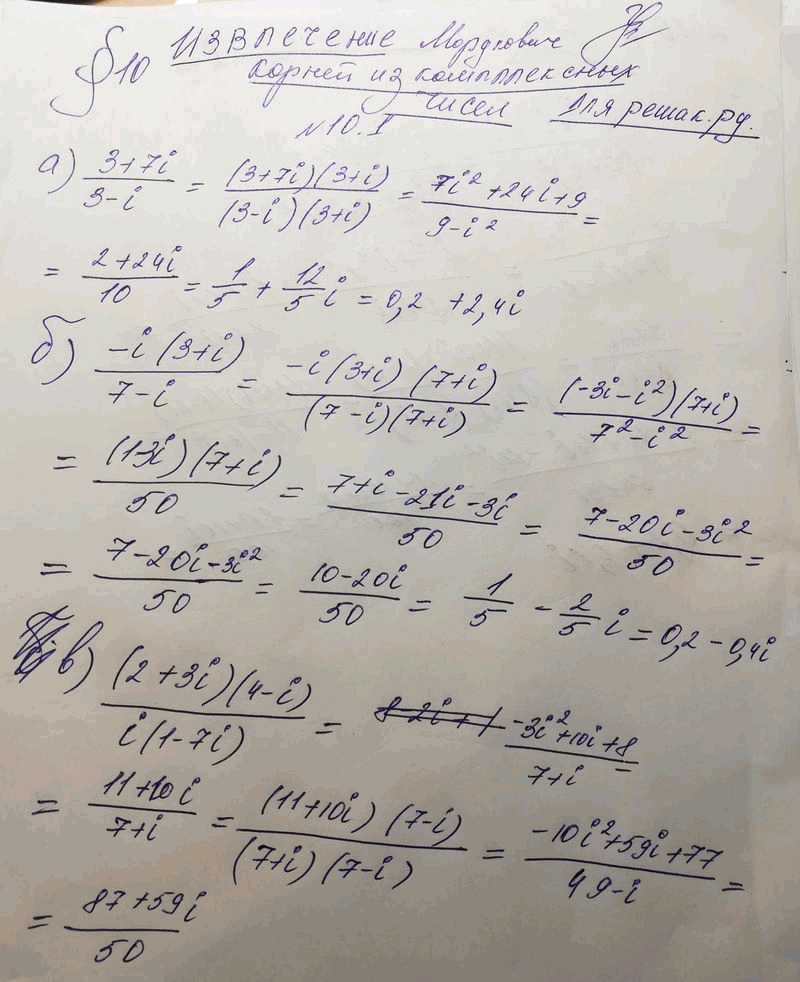 §10 Извлечение Мордкович
корней из комплексных
чисел для решак.ру.
№10.1
а) (3+7i)/(3-i) = ((3+7i)(3+i))/((3-i)(3+i)) = (7i²+24i+9)/(9-i²) =
= (2+24i)/10 = 1/5 + 12/5 i = 0,2 +2,4i
б) (-i(3+i))/(7-i) = (-i(3+i)(7+i))/((7-i)(7+i)) = ((-3i-i²)(7+i))/(7²-i²) =
= ((1-3i)(7+i))/50 = (7+i-21i-3i)/50 = (7-20i-3i²)/50 =
= (7-20i-3i²)/50 = (10-20i)/50 = 1/5 - 2/5 i = 0,2-0,4i
в) ((2+3i)(4-i))/(i(1-7i)) = (-3i²+10i+8)/(7+i) =
= (11+10i)/(7+i) = ((11+10i)(7-i))/((7+i)(7-i)) = (-10i²+59i+77)/(49-i) =
= (87+59i)/50